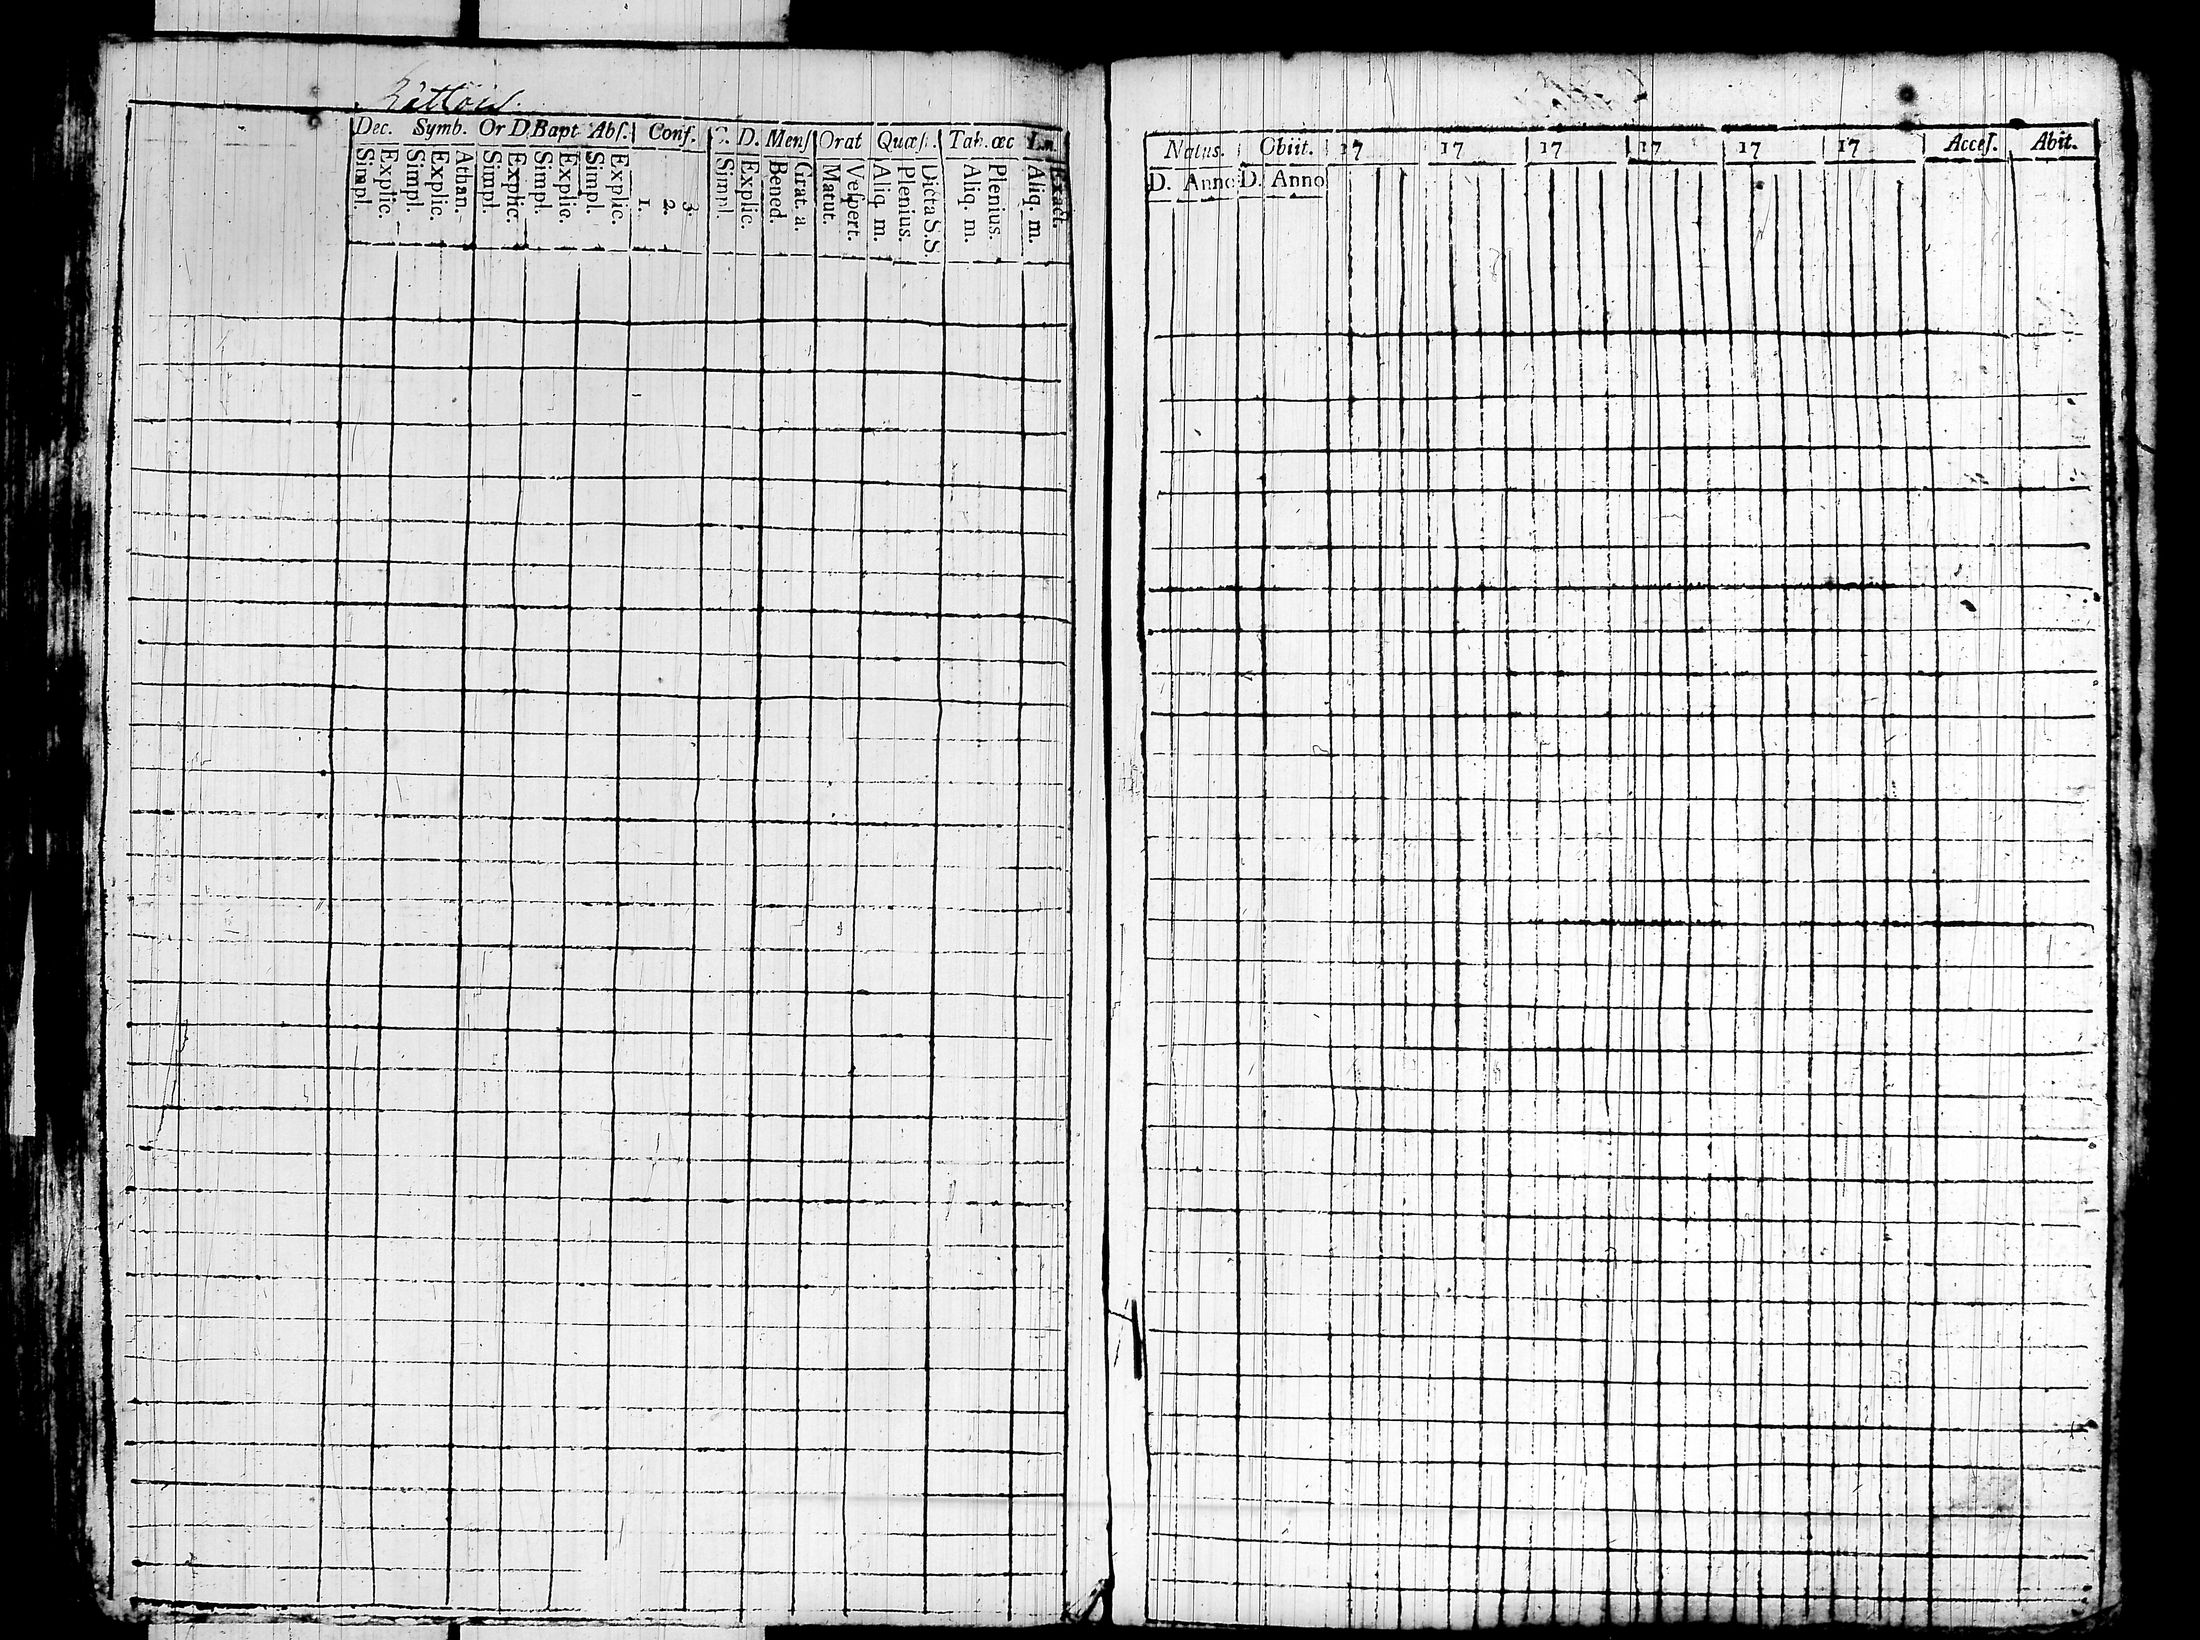 Dec. Symb. Or D. Bapt. Abſ. Conf. C. D. Menſ Orat Quæſ. Tab. œc
Simpl. Explic. Simpl. Explic. Athan. Simpl. Explic. Simpl. Explic. Simpl. Explic. 1. 2. 3. Simpl. Explic. Bened. Grat. a. Matut. Veſpert. Aliq. m. Plenius. Dicta S.S. Aliq. m. Plenius. Aliq. m. Exact.
Natus. Obiit. 17 17 17 17 17 17 Acceſ. Abit.
D. Anno D. Anno